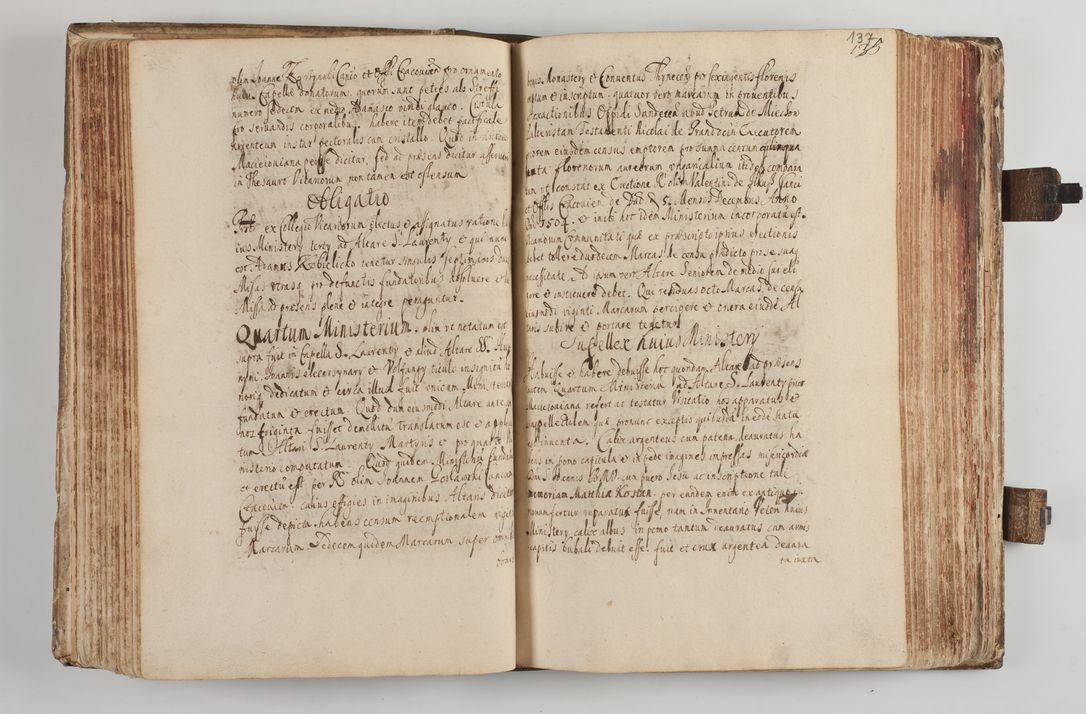 olim Joanne Canco et Offi Cracovien pro ornamento
huius Capellæ donatorum, quorum sunt petes als Streffi
numero sedecem ex nigro Adamasco viridi glauco. Cistula
pro servandis corporalibus habere item debet pacificale
argenteum instar pectoralis cum cristallo. Quod in
Macieiowiana penesse dicitur, sed ad præsens dicitur asservari
in Thesauro Vicariorum non tamen est ostensum
Obligatio
ex collegio Vicariorum electus et assignatus ratione
ius Ministerii tertii ad Altare S. Laurentii et qui nunc
est Adamus Kobielicko tenetur singulis septimanis duas
Missas utrasq pro defunctis fundatoribus absolvere et
Missæ ad præsens plene et integre peraguntur.
Quartum Ministerium. olim ut notatum est
supra fuit in Capella S. Laurentii et aliud Altare SS.
nymi Joannis Eleemosynarii et Wolfangi titulo insignitu
noriq dedicatum et circa illud fuit unicum Ministerium
fundatum et erectum. Quod dum eiusmodi Altare ante an
nos triginta fuisset demolitum translatum est et applica
tum Altari S. Laurentii Martyris et pro quarto Mi
nisterio computatum. Quod quidem Ministerium fundatum
et erectu est per R. olim Joannem Goslawski Canonicum
Cracovien. cuius effigies in imaginibus Altaris dicitur
fuisse depicta. habens censum reemptionalem viginti
Marcarum. Sedecem quidem Marcarum super omnibus
bonis
137
135
Monastery et Conventus Thynecen pro sexingentis florenis
emptum et inscriptum. quatuor vero marcarum in proventibus
exactionibus Oppidi Sandecen apud Petrum de Miechow
Testamenti Nicolai de Brandzcin Executorem
priorem eiusdem census emptorem pro summa centum quinqua
ginta florenorum aureorum vngaricalium itidem compara
tum ut constat ex Erectione R. olim Valentini de Ilkusz Canci
et Offilis Cracovien de Dat. d. 5. Mensis Decembris Anno
Dni 1504. et inibi hoc idem Ministerium incorporatu est
Vicariorum Communitati quæ ex præscripto ipsius erectionis
debet tollere duodecem Marcas de censu prædicto pro sua
necessitate. Ad ipsum vero Altare Seniorem de medio sui eli
gere et instituere debet. Qui residuas octo Marcas de censu
eiusmodi viginti Marcarum percipere et onera eiusdem Al
taris subire et portare tenetur.
Supellex huius Ministerii
Habuisse et habere debuisse hoc quondam Altare ad præsens
autem Quartum Ministerium ad Altare S. Laurentii prior
Macieiowiana refert ac testatur Visitatio hos apparatus et
suppellectilem quæ pronunc exceptis quibusda inedei statu
est inventa. Calix argenteus cum patena deauratus ha
bens in pomo capitula et in pede imagines impressas misericordiæ
Dni S. Joannis BVMV cum puero Jesu ac inscriptione tali
memoriam Matthiæ Kostan. per eundem enim ex antiquo in
novum fertur reparatus fuisse, nam in Inventario Veteri huius
Ministerii calix albus in pomo tantum deauratus cum armis
capitis bubali debuit esse. fuit et crux argentea deaura
ta inata